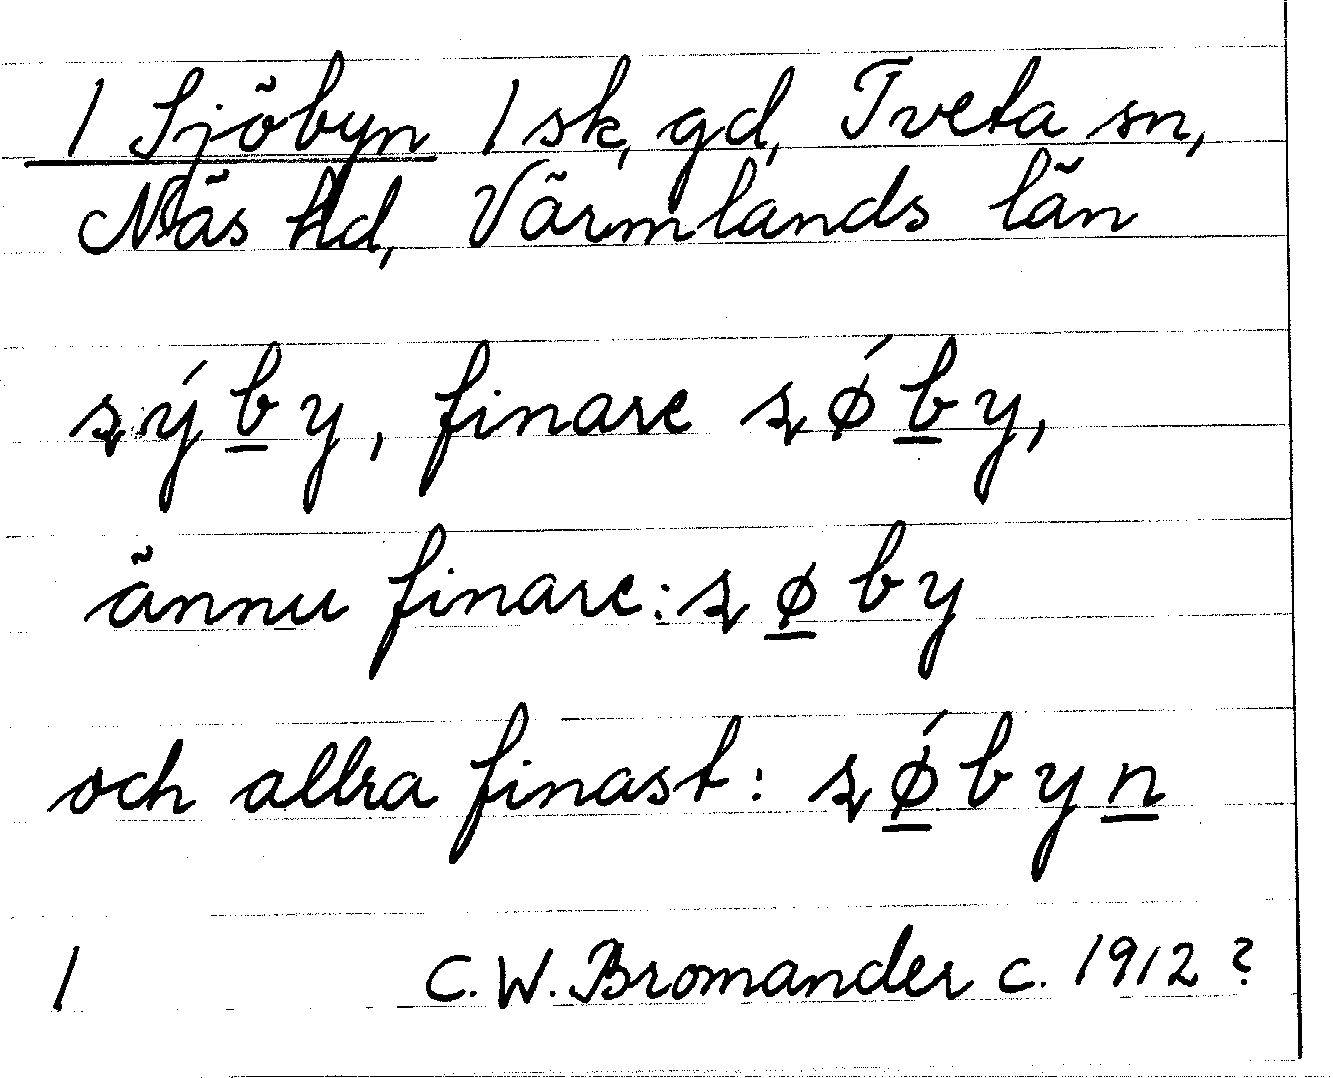 1 Sjöbyn 1 sk, gd, Tveta sn,
Näs hd, Värmlands län
ʂýb̲y, finare ʂǿb̲y,
ännu finare: ʂø̲by
och allra finast: ʂǿ̲byn̲
1 C. W. Bromander c. 1912?